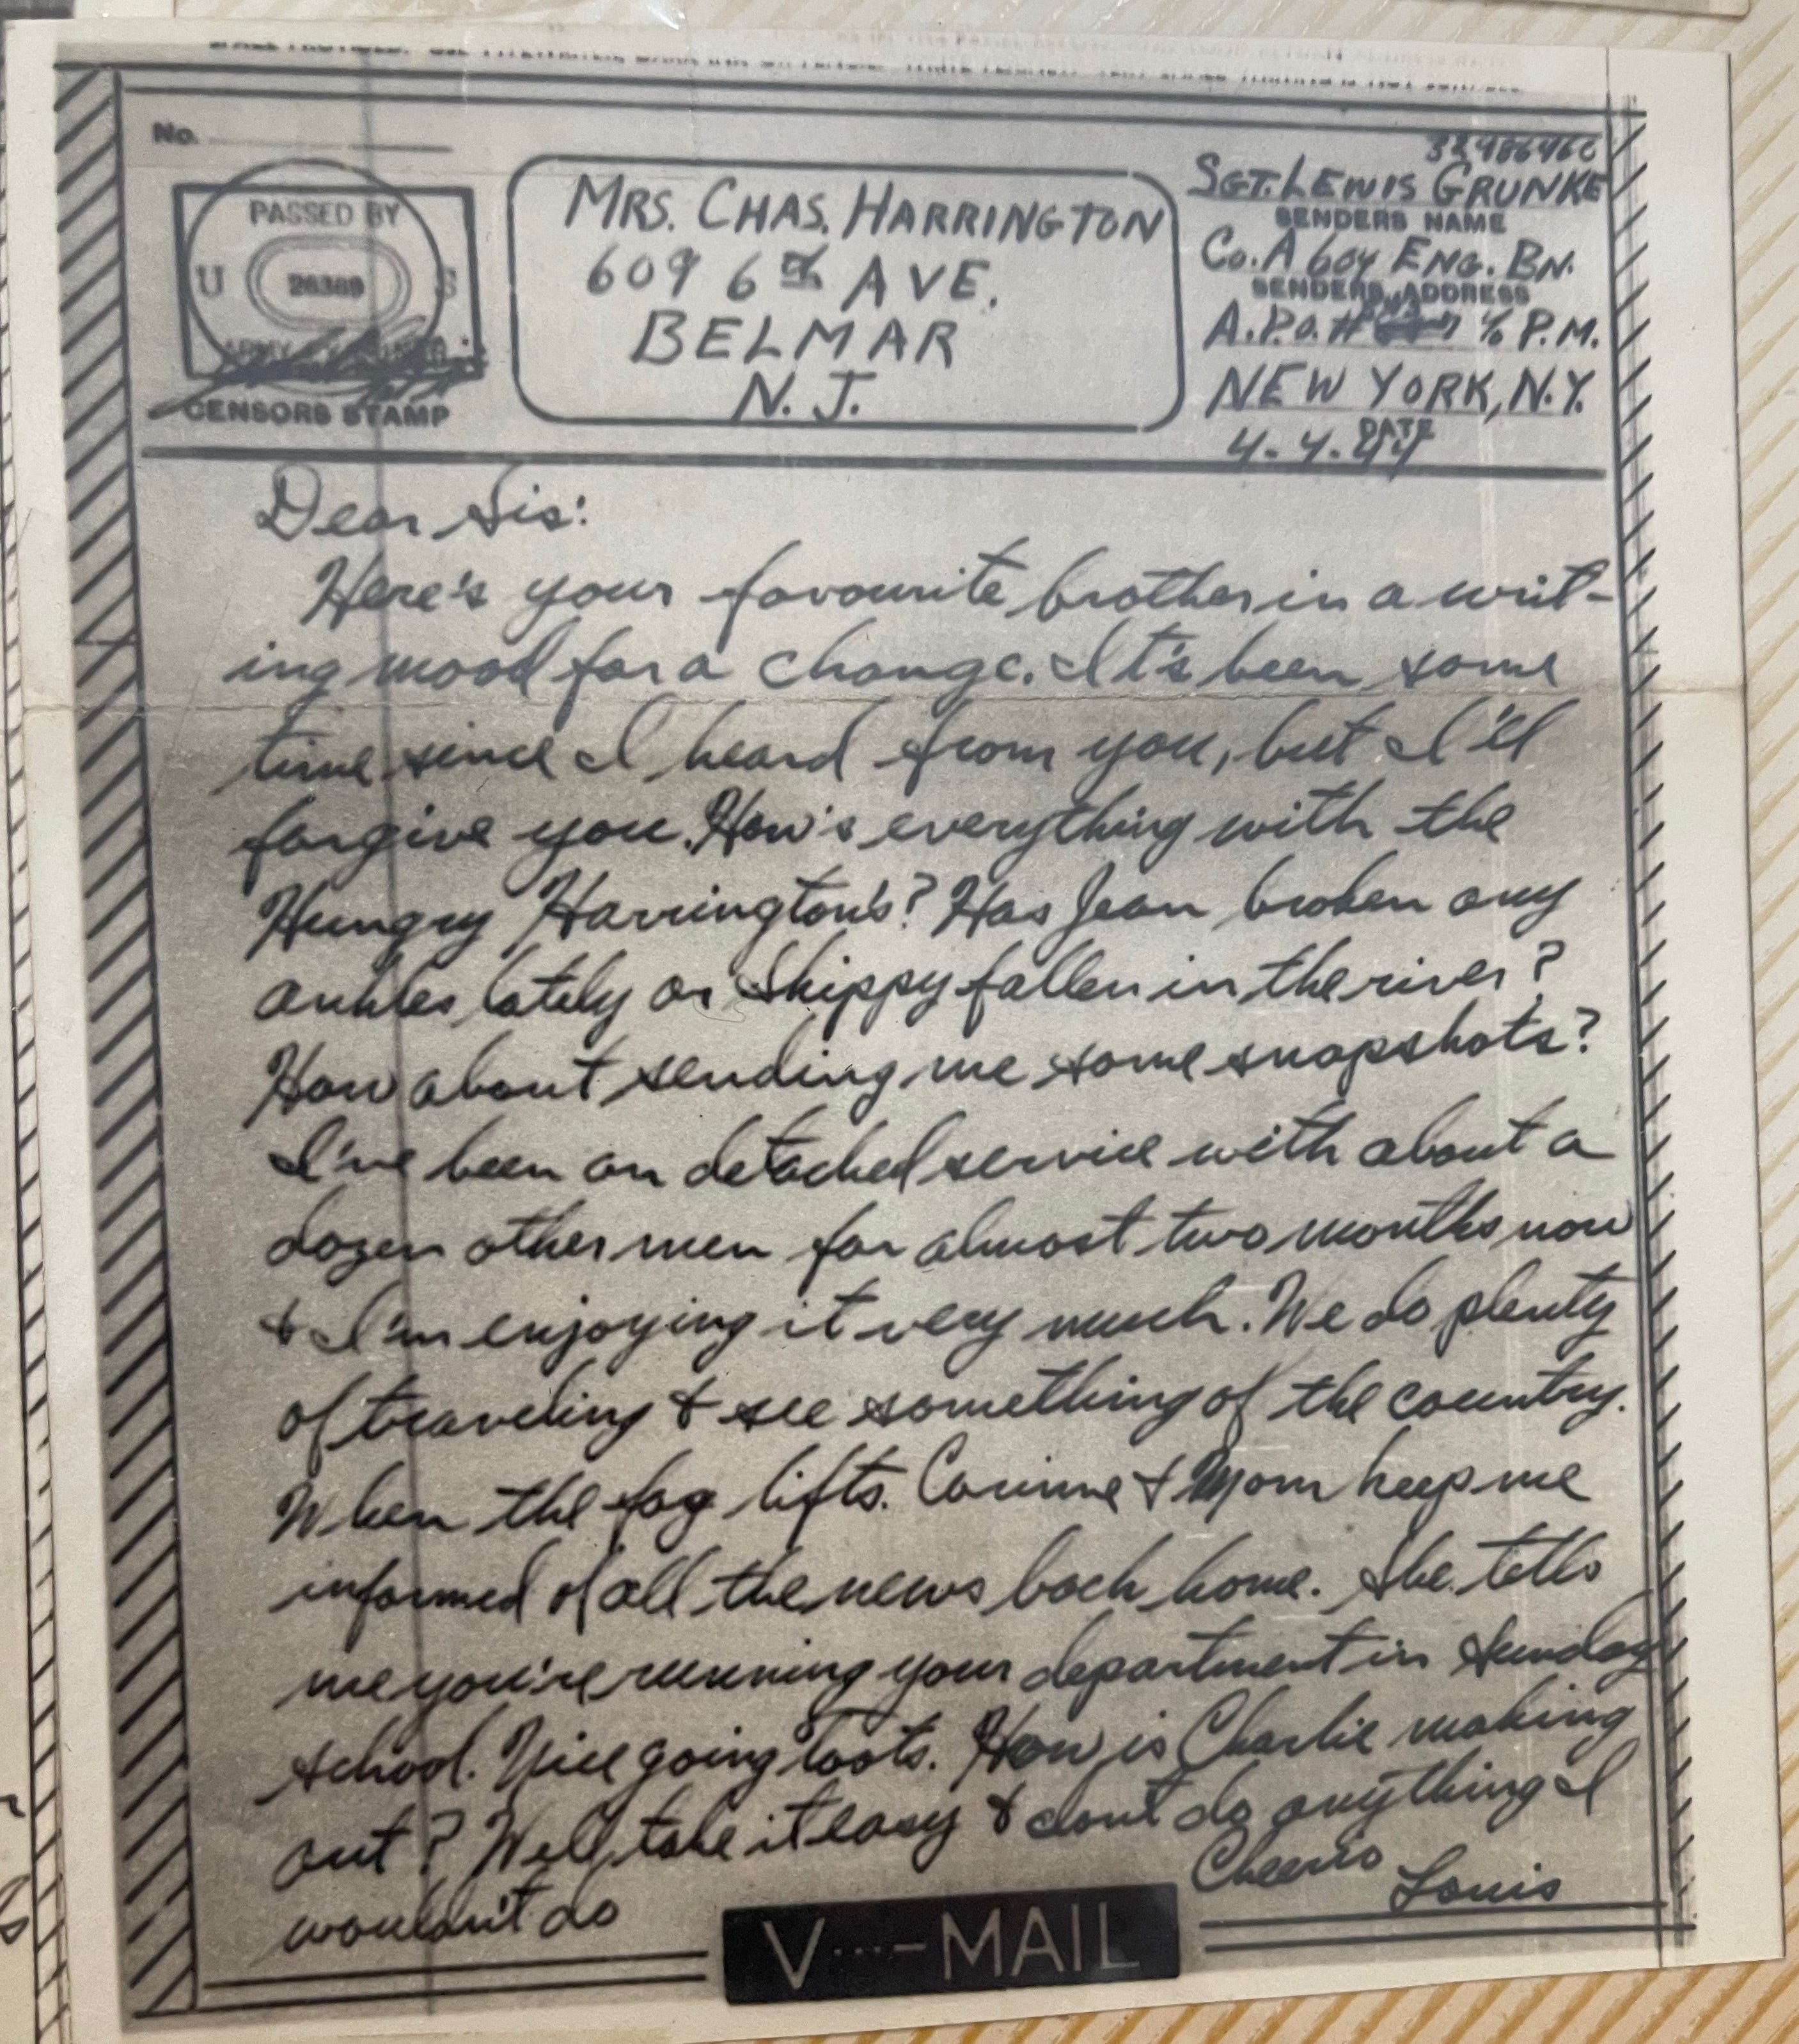 No.
PASSED BY
U 26389 S
CENSORS STAMP
MRS. CHAS. HARRINGTON
609 6th AVE.
BELMAR
N. J.
SGT. LEWIS GRUNKE
SENDERS NAME
Co. A 604 ENG. BN.
SENDERS ADDRESS
A.P.O. # % P.M.
NEW YORK, N.Y.
DATE
4.4.44
Dear Sis:
Here's your favourite brother in a writ-
ing mood for a change. It's been some
time since I heard from you, but I'll
forgive you. How's everything with the
Hungry Harrington's? Has Jean broken any
ankles lately or Skippy fallen in the river?
How about sending me some snapshots?
I've been on detached service with about a
dozen other men for almost two months now
& I'm enjoying it very much. We do plenty
of traveling & see something of the country.
When the fog lifts. Corinne & Mom keep me
informed of all the news back home. She tells
me you're running your department in Sunday
school. Nice going toots. How is Charlie making
out? Well, take it easy & don't do anything I
wouldn't do
Cheerio
Louis
V...-MAIL